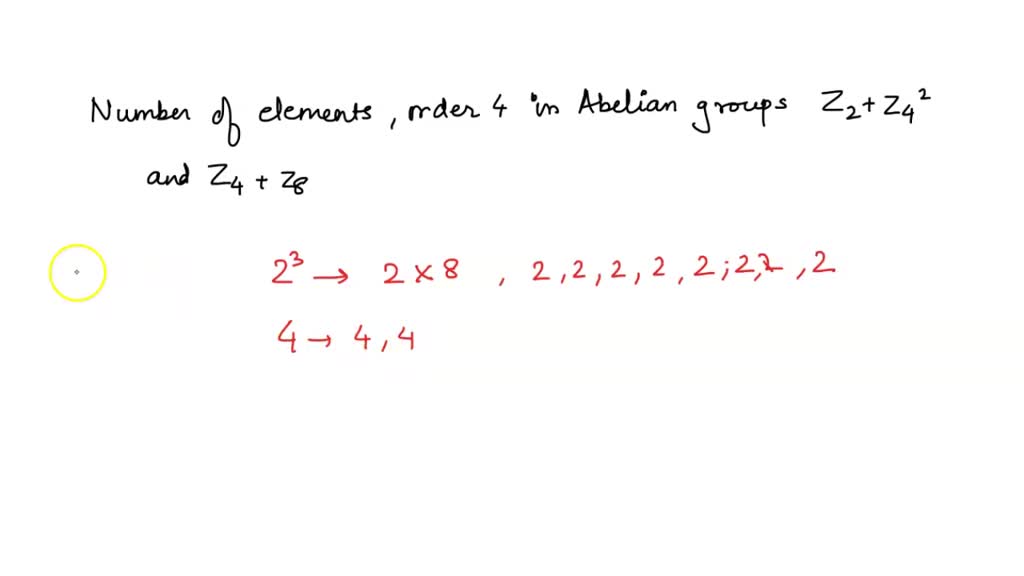 Number of elements, order 4 in Abelian groups Z₂ + Z₄²
and Z₄ + Z₈
2³ → 2 × 8 , 2, 2, 2, 2, 2; 2, 2, 2
4 → 4, 4